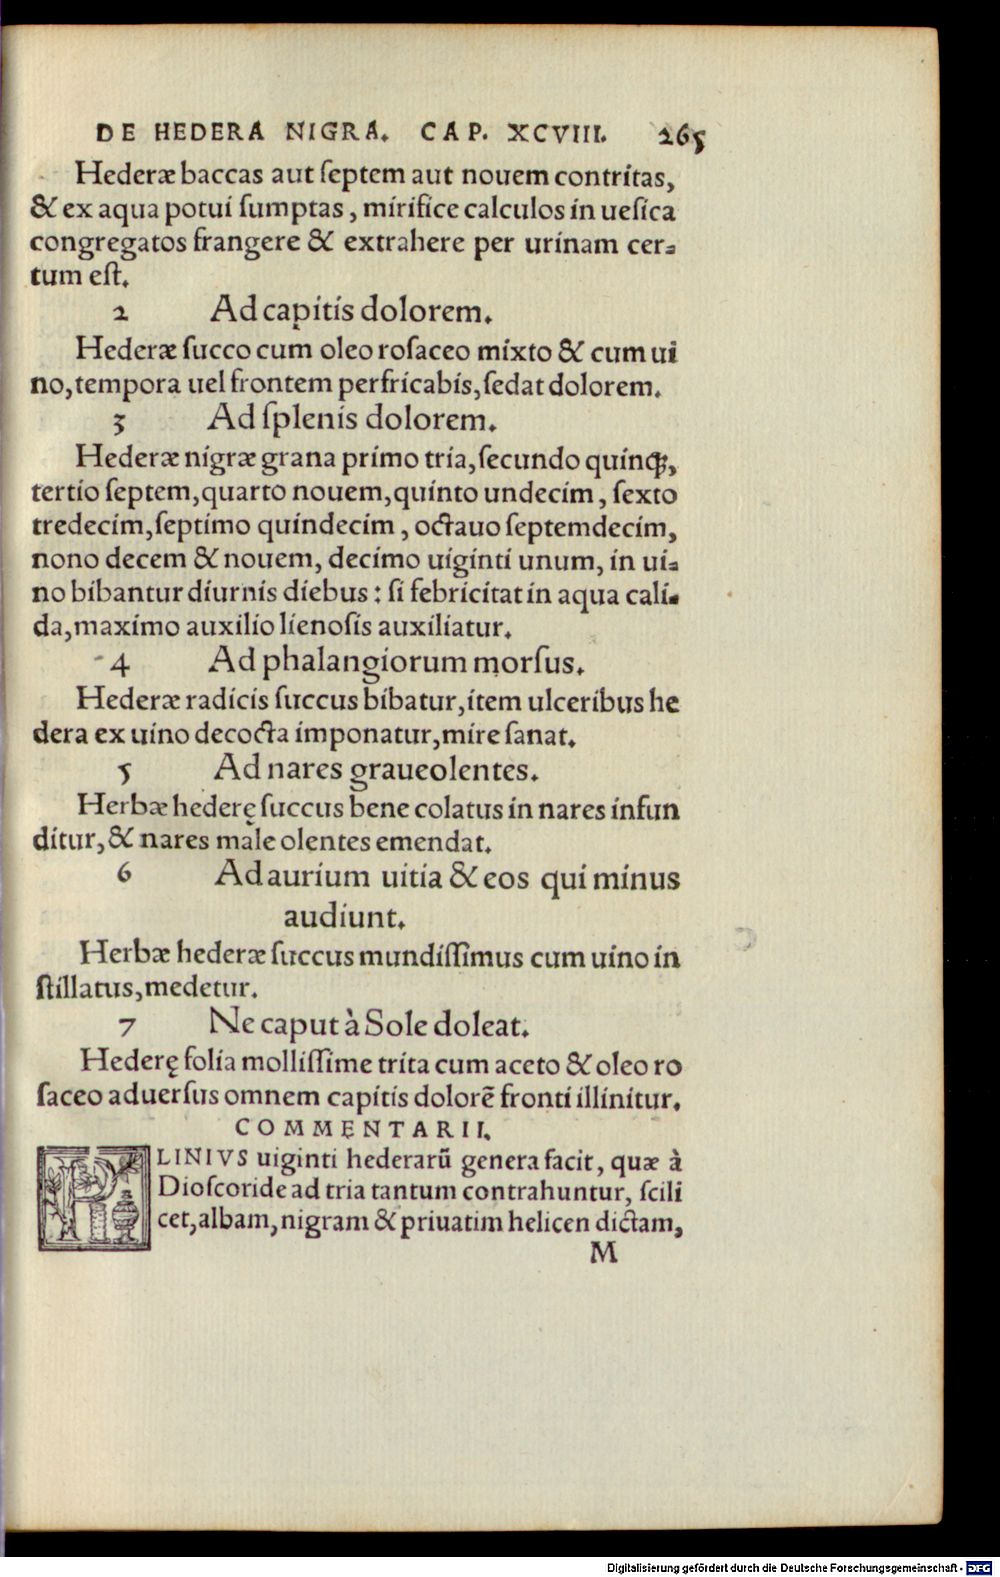 DE HEDERA NIGRA. CAP. XCVIII. 265
Hederæ baccas aut ſeptem aut nouem contritas,
& ex aqua potui ſumptas, mirifice calculos in ueſica
congregatos frangere & extrahere per urinam cer⸗
tum eſt.
2 Ad capitis dolorem.
Hederæ ſucco cum oleo roſaceo mixto & cum ui
no, tempora uel frontem perfricabis, ſedat dolorem.
3 Ad ſplenis dolorem.
Hederæ nigræ grana primo tria, ſecundo quinqꝫ,
tertio ſeptem, quarto nouem, quinto undecim, ſexto
tredecim, ſeptimo quindecim, octauo ſeptemdecim,
nono decem & nouem, decimo uiginti unum, in ui⸗
no bibantur diurnis diebus: ſi febricitat in aqua cali⸗
da, maximo auxilio lienoſis auxiliatur.
4 Ad phalangiorum morſus.
Hederæ radicis ſuccus bibatur, item ulceribus he
dera ex uino decocta imponatur, mire ſanat.
5 Ad nares graueolentes.
Herbæ hederę ſuccus bene colatus in nares infun
ditur, & nares male olentes emendat.
6 Ad aurium uitia & eos qui minus
audiunt.
Herbæ hederæ ſuccus mundiſſimus cum uino in
ſtillatus, medetur.
7 Ne caput à Sole doleat.
Hederę folia molliſſime trita cum aceto & oleo ro
ſaceo aduerſus omnem capitis dolorē fronti illinitur.
COMMENTARII.
PLINIVS uiginti hederarū genera facit, quæ à
Dioſcoride ad tria tantum contrahuntur, ſcili
cet, albam, nigram & priuatim helicen dictam,
M
Digitalisierung gefördert durch die Deutsche Forschungsgemeinschaft - DFG